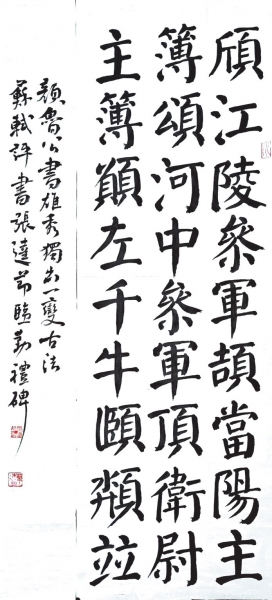 頎江陵參軍頡當陽主
簿頌河中參軍頂衛尉
主簿顗左千牛頤頮竝
顏魯公書雄秀獨出一變古法
蘇軾評書張達節臨勤禮碑